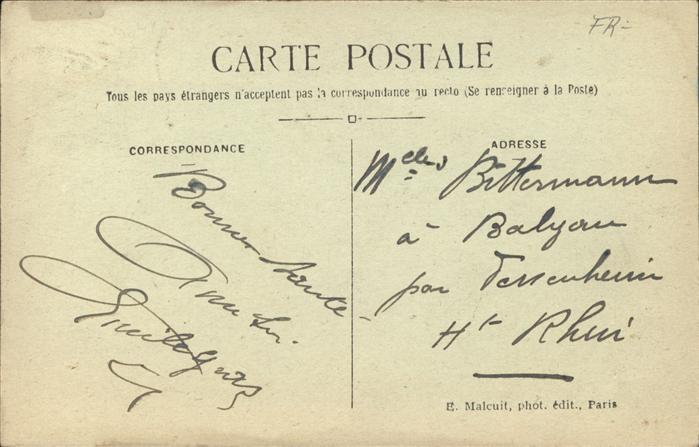 FR-
CARTE POSTALE
Tous les pays étrangers n'acceptent pas la correspondance au recto (Se renseigner à la Poste)
CORRESPONDANCE
Bonne Santé
ADRESSE
Melles Bittermann
à Balgau
par Fessenheim
Ht Rhin
E. Malcuit, phot. édit., Paris